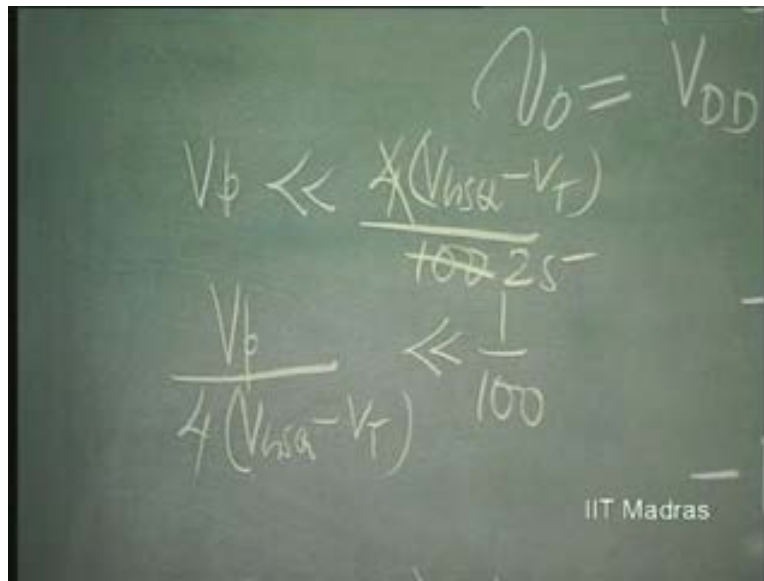 V0 = VDD
Vp << 4(VGSQ - VT)
100 25
Vp << 1
4(VGSQ - VT) 100
IIT Madras